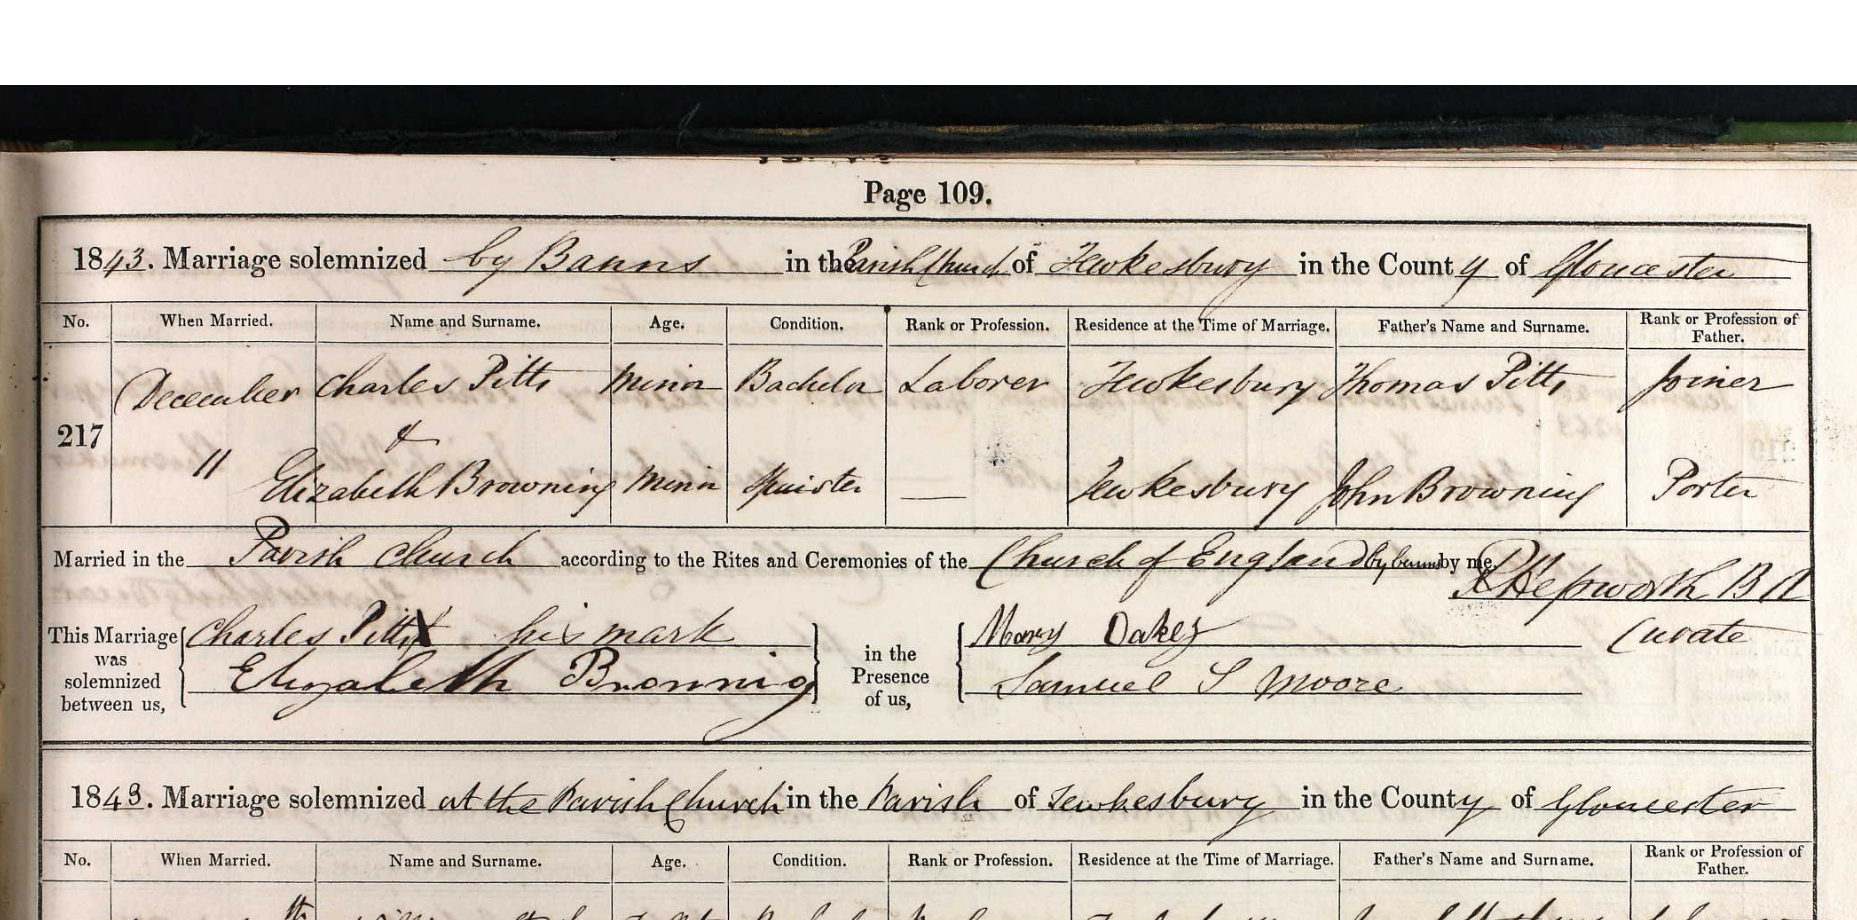 Page 109.
1843. Marriage solemnized by Banns in the Parish Church of Tewkesbury in the County of Gloucester
No. When Married. Name and Surname. Age. Condition. Rank or Profession. Residence at the Time of Marriage. Father's Name and Surname. Rank or Profession of Father.
December Charles Pitts Minor Bachelor Laborer Tewkesbury Thomas Pitts Joiner
217 &
11 Elizabeth Browning Minor Spinster — Tewkesbury John Browning Porter
Married in the Parish Church according to the Rites and Ceremonies of the Church of England by banns by me,
Hepworth BA
This Marriage was solemnized between us, Charles Pitts X his mark
Elizabeth Bronnig
in the Presence of us, Mary Oakey Curate
Samuel S Moore
1843. Marriage solemnized at the Parish Church in the Parish of Tewkesbury in the County of Gloucester
No. When Married. Name and Surname. Age. Condition. Rank or Profession. Residence at the Time of Marriage. Father's Name and Surname. Rank or Profession of Father.